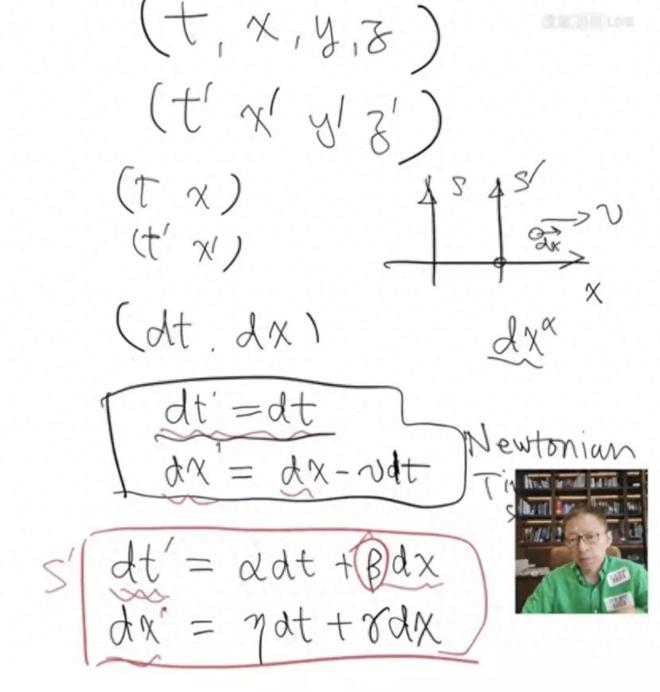 (t, x, y, z)
LIVE
(t' x' y' z')
(t x)
(t' x')
S S'
dx v
x
(dt. dx)
dx^α
dt' = dt
dx' = dx - vdt
Newtonian
S'
dt' = αdt + βdx
dx' = ηdt + γdx